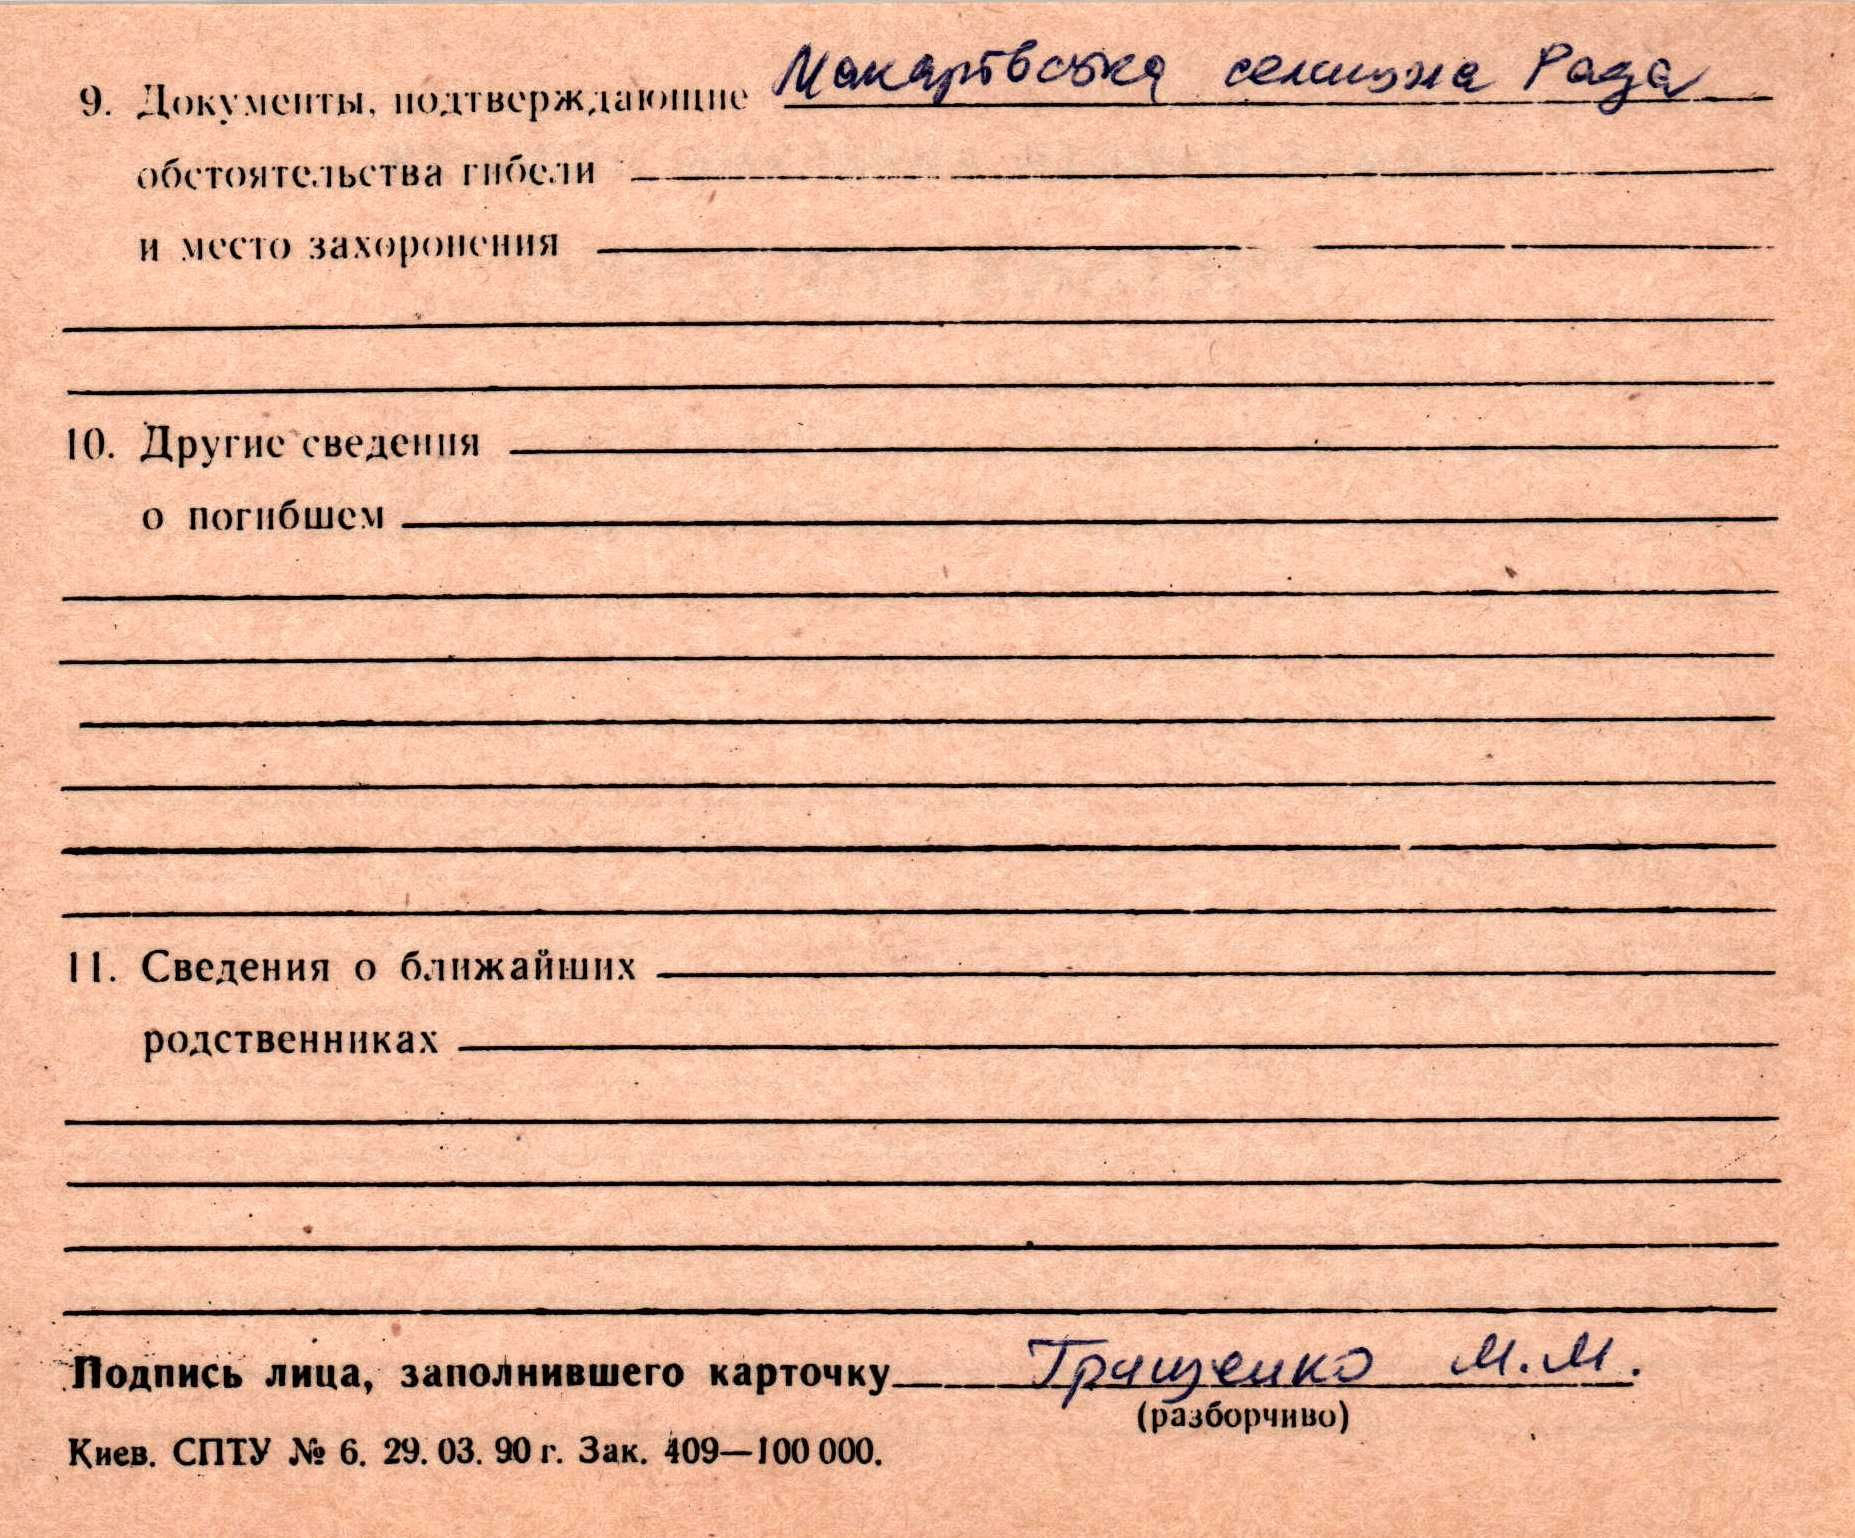 9. Документы, подтверждающие Макарівська селищна Рада
обстоятельства гибели
и место захоронения
10. Другие сведения
о погибшем
11. Сведения о ближайших
родственниках
Подпись лица, заполнившего карточку Грищенко М.М.
(разборчиво)
Киев. СПТУ № 6. 29. 03. 90 г. Зак. 409—100 000.